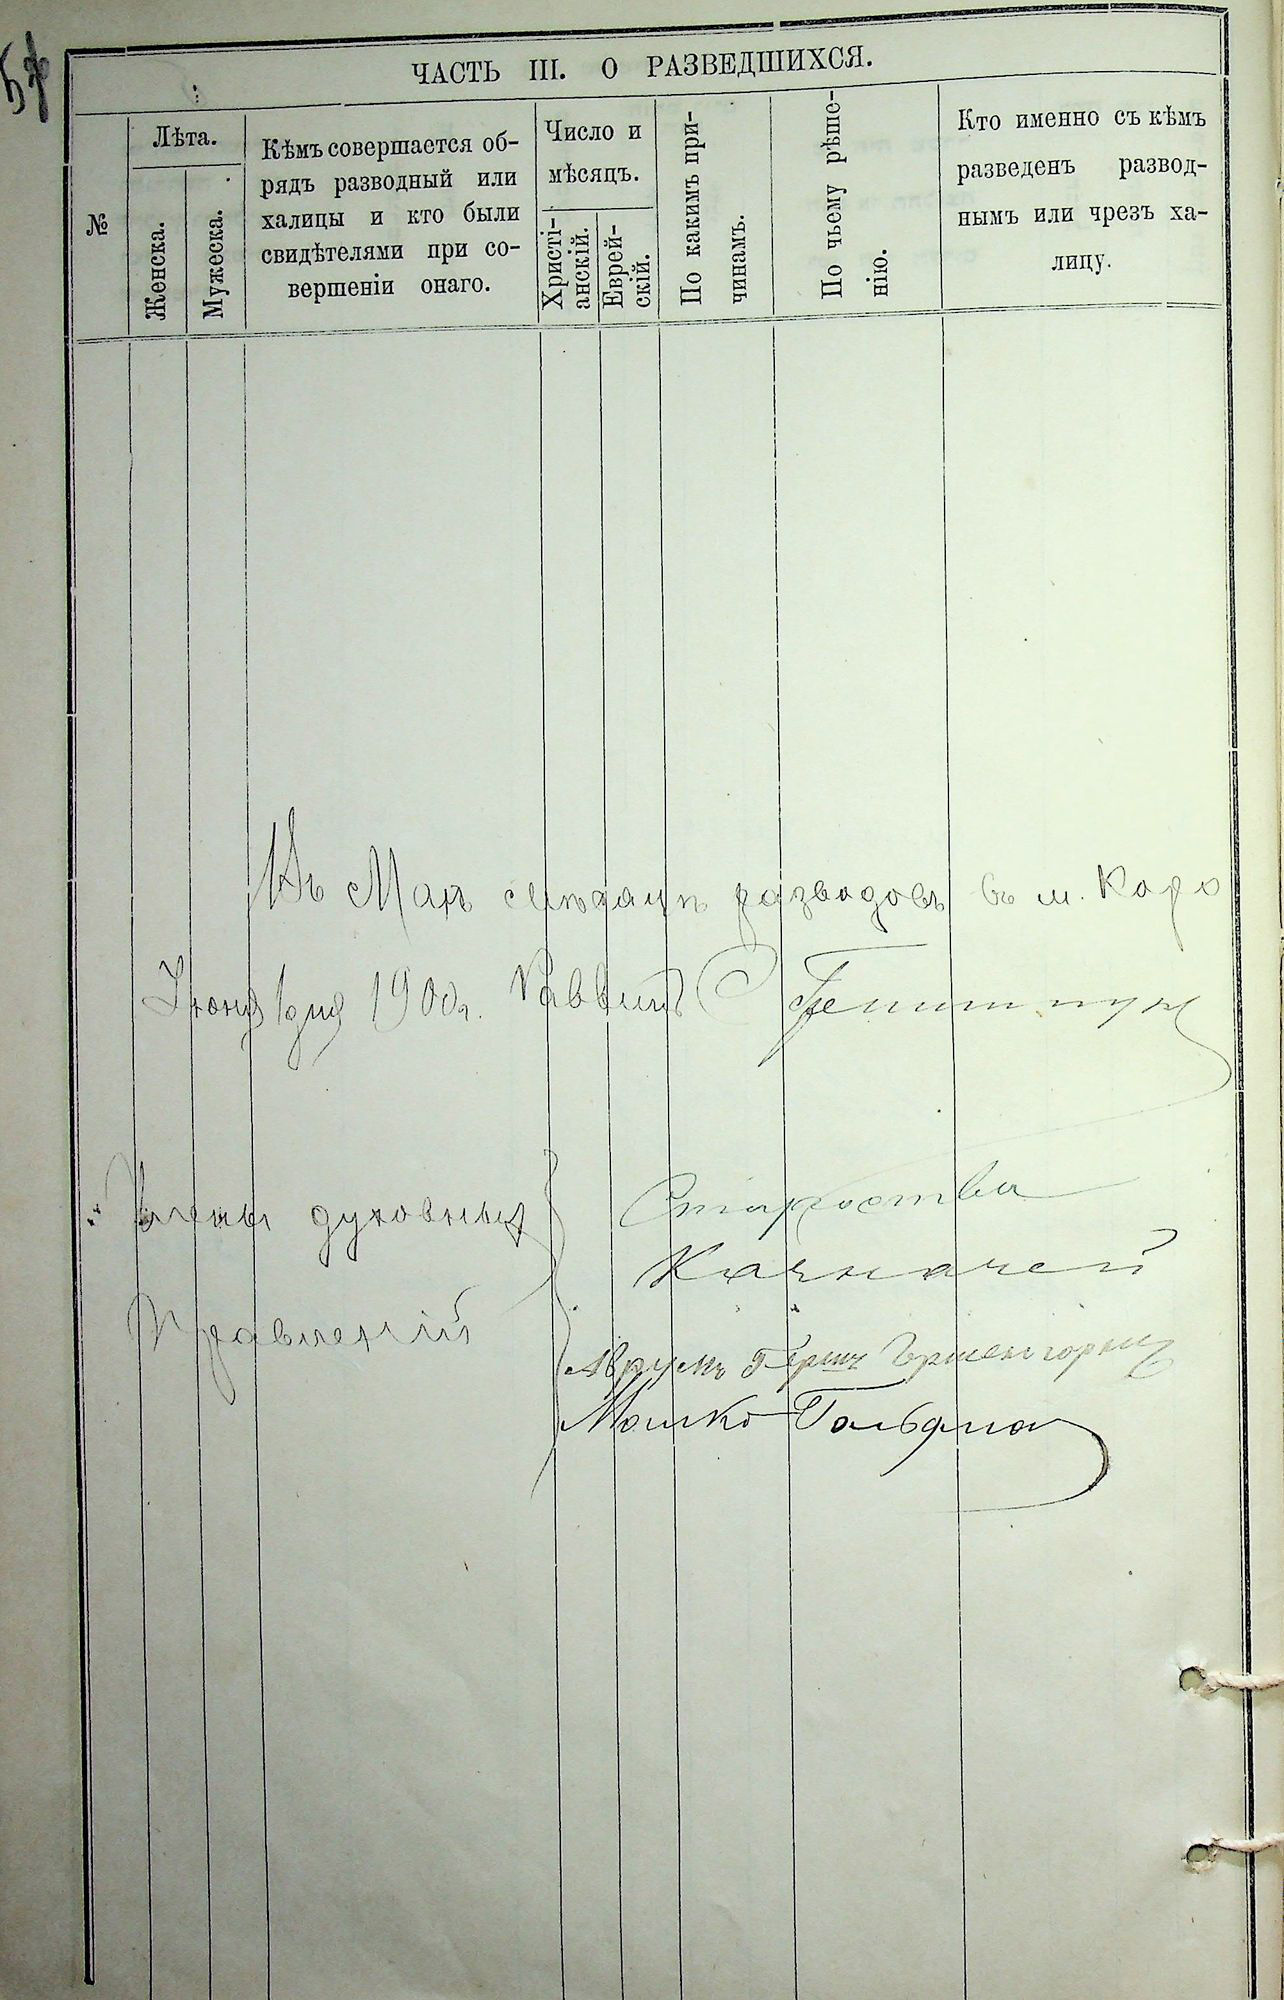 ЧАСТЬ III. О РАЗВЕДШИХСЯ.
№
Лѣта.
Женска.
Мужеска.
Кѣмъ совершается об-
рядъ разводный или
халицы и кто были
свидѣтелями при со-
вершеніи онаго.
Число и
мѣсяцъ.
Христі-
анскій.
Еврей-
скій.
По какимъ при-
чинамъ.
По чьему рѣше-
нію.
Кто именно съ кѣмъ
разведенъ развод-
нымъ или чрезъ ха-
лицу.
Въ Маѣ разводовъ въ м.
Іюня 1 дня 1900 г. Раввинъ
Члены духовныхъ
Правленій
Староства
Казначей
Мошко Гольдма